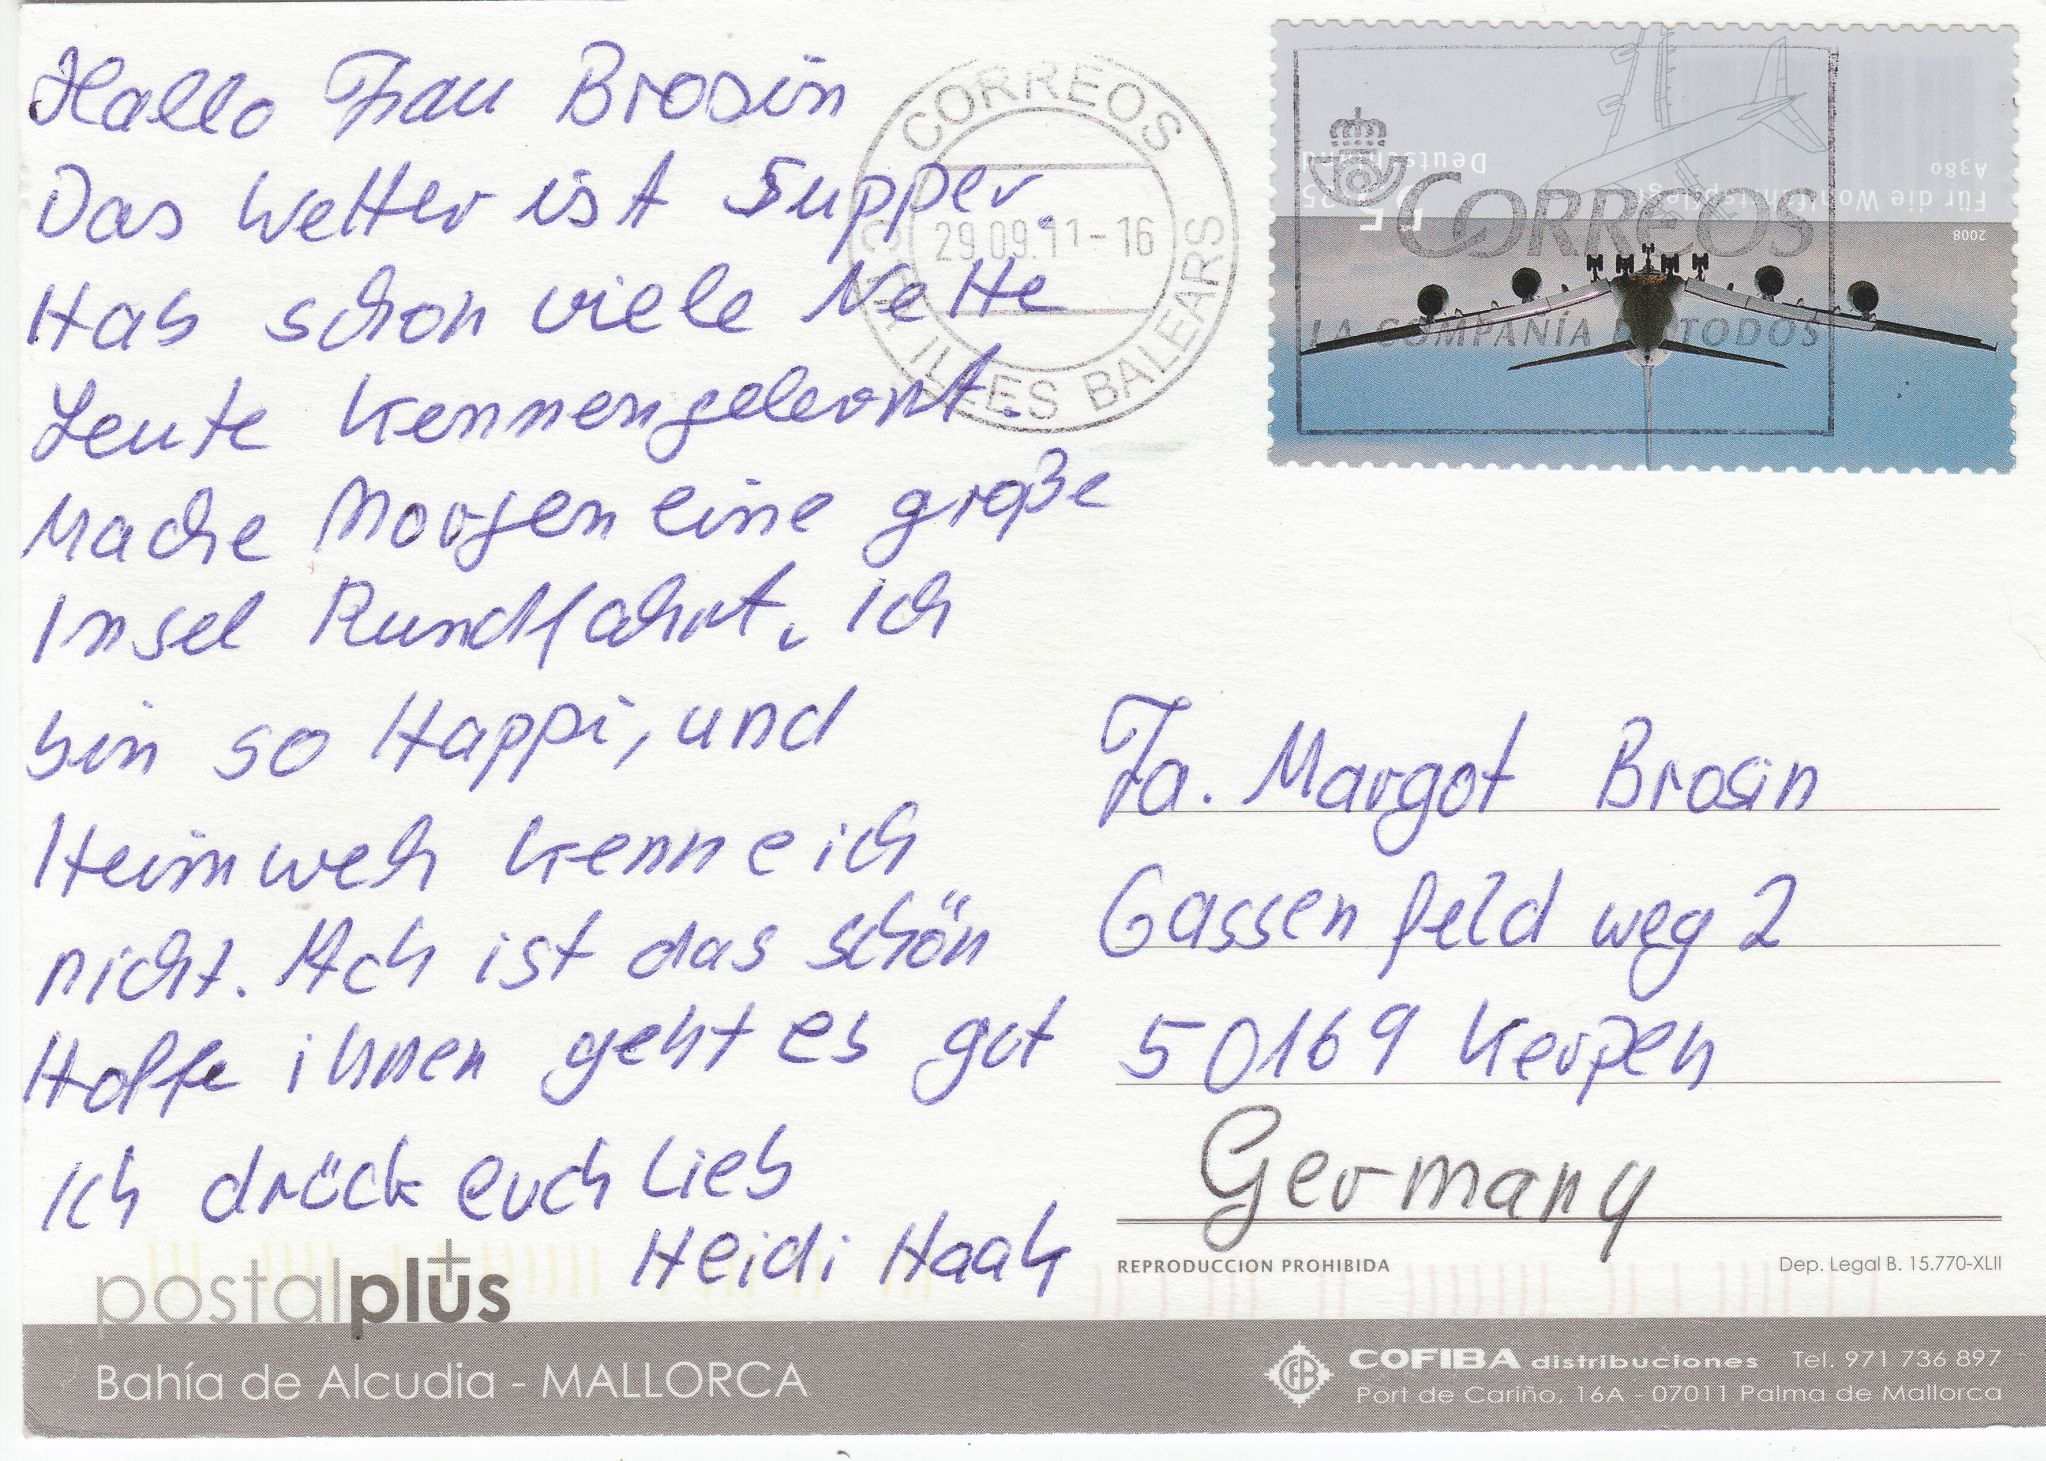 Hallo Frau Brosin
Das Wetter ist Supper.
Hab schon viele Nette
Leute kennengelernt.
Mache Morgen eine große
Insel Rundfahrt. Ich
bin so Happi, und
Heimweh kenne ich
nicht. Ach ist das schön
Hoffe ihnen geht es gut
Ich drück euch Lieb
Heidi Haak
CORREOS
29.09.11-16
ILLES BALEARS
Deutschland
A380
Für die Wohlfahrtspflege
2008
CORREOS
LA COMPAÑÍA DE TODOS
Fa. Margot Brosin
Gassenfeldweg 2
50169 Kerpen
Germany
REPRODUCCION PROHIBIDA
Dep. Legal B. 15.770-XLII
postalplus
Bahía de Alcudia - MALLORCA
COFIBA distribuciones Tel. 971 736 897
Port de Cariño, 16A - 07011 Palma de Mallorca